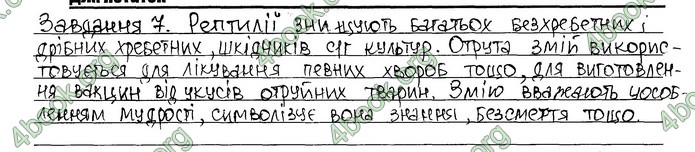 Для нотаток
Завдання 7. Рептилії знищують багатьох безхребетних і
дрібних хребетних, шкідників с/г культур. Отрута змій викорис-
товується для лікування певних хвороб тощо, для виготовлен-
ня вакцин від укусів отруйних тварин. Змію вважають уособ-
ленням мудрості, символізує вона знання, безсмертя тощо.